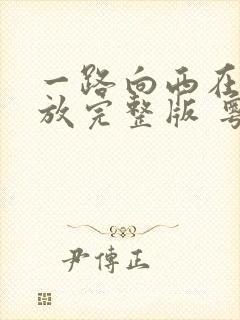 一路向西在
放完整版 粤
尹傅正